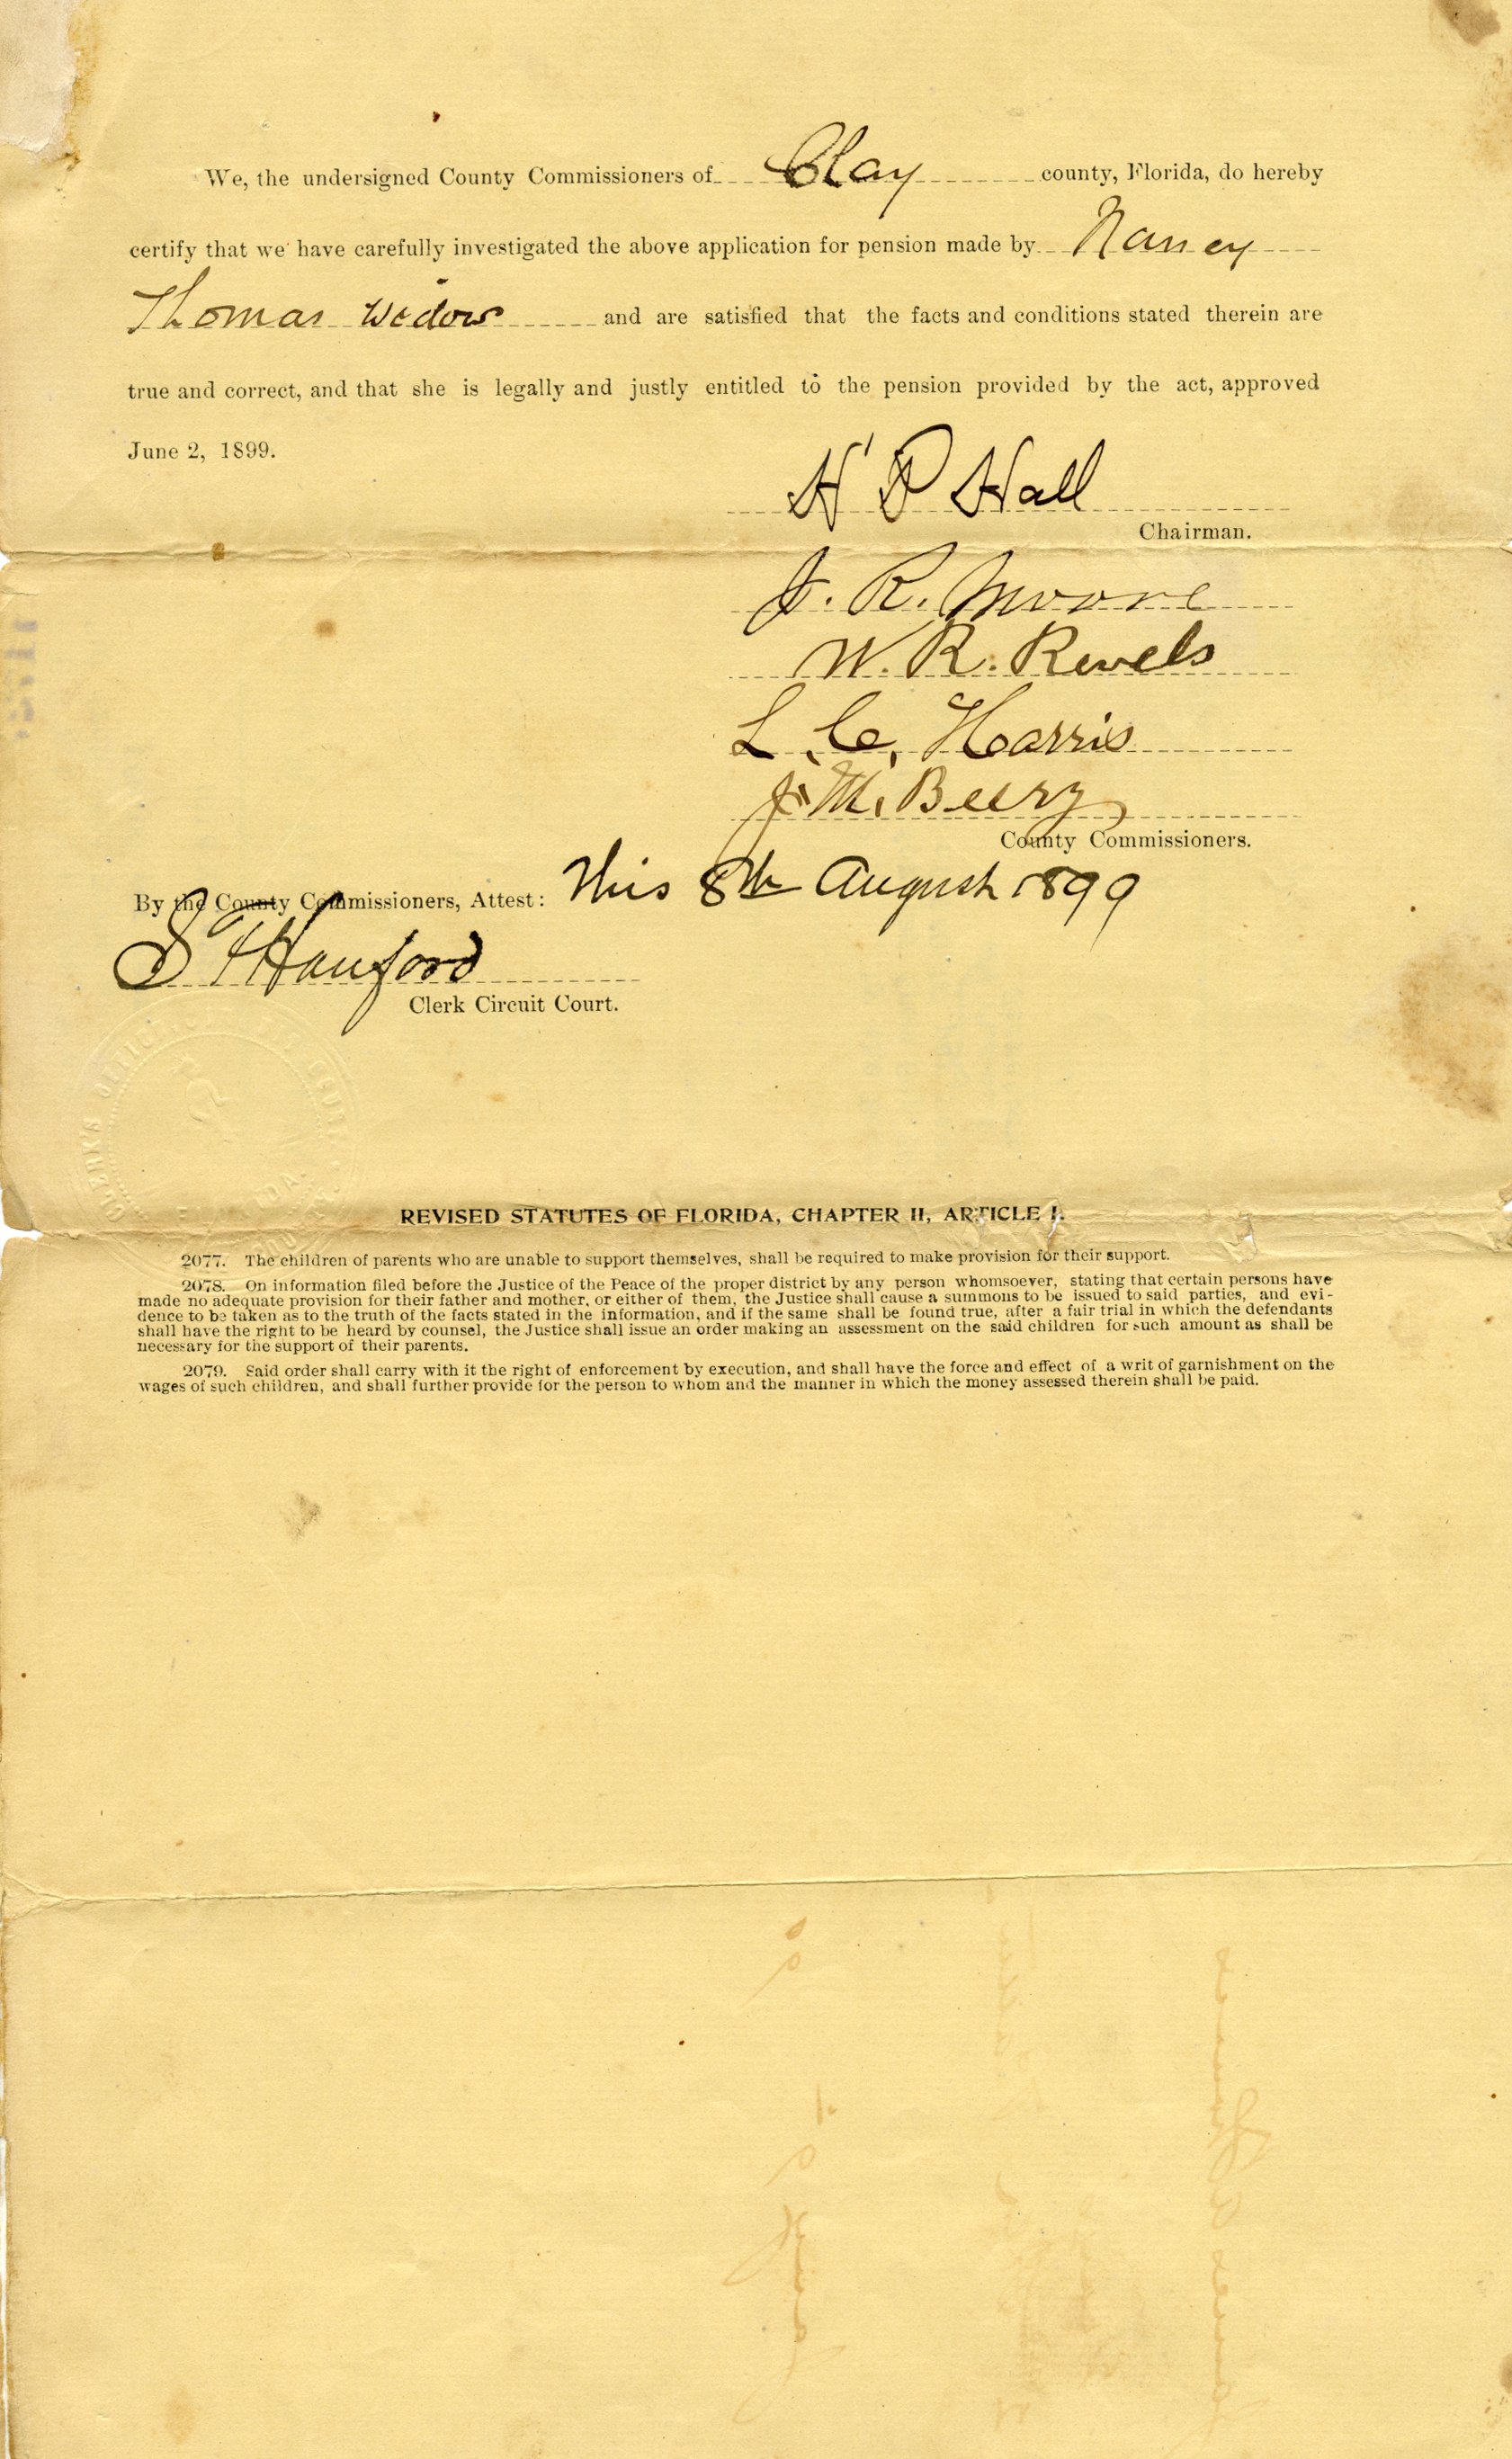 We, the undersigned County Commissioners of Clay county, Florida, do hereby
certify that we have carefully investigated the above application for pension made by Nancy
Thomas widow and are satisfied that the facts and conditions stated therein are
true and correct, and that she is legally and justly entitled to the pension provided by the act, approved
June 2, 1899.
H P Hall
Chairman.
J. R. Moore
W. R. Revels
L. C. Harris
J. M. Beery
County Commissioners.
By the County Commissioners, Attest: This 8th August 1899
Hanford
Clerk Circuit Court.
CLERK'S
REVISED STATUTES OF FLORIDA, CHAPTER II, ARTICLE I.
2077. The children of parents who are unable to support themselves, shall be required to make provision for their support.
2078. On information filed before the Justice of the Peace of the proper district by any person whomsoever, stating that certain persons have
made no adequate provision for their father and mother, or either of them, the Justice shall cause a summons to be issued to said parties, and evi-
dence to be taken as to the truth of the facts stated in the information, and if the same shall be found true, after a fair trial in which the defendants
shall have the right to be heard by counsel, the Justice shall issue an order making an assessment on the said children for such amount as shall be
necessary for the support of their parents.
2079. Said order shall carry with it the right of enforcement by execution, and shall have the force and effect of a writ of garnishment on the
wages of such children, and shall further provide for the person to whom and the manner in which the money assessed therein shall be paid.